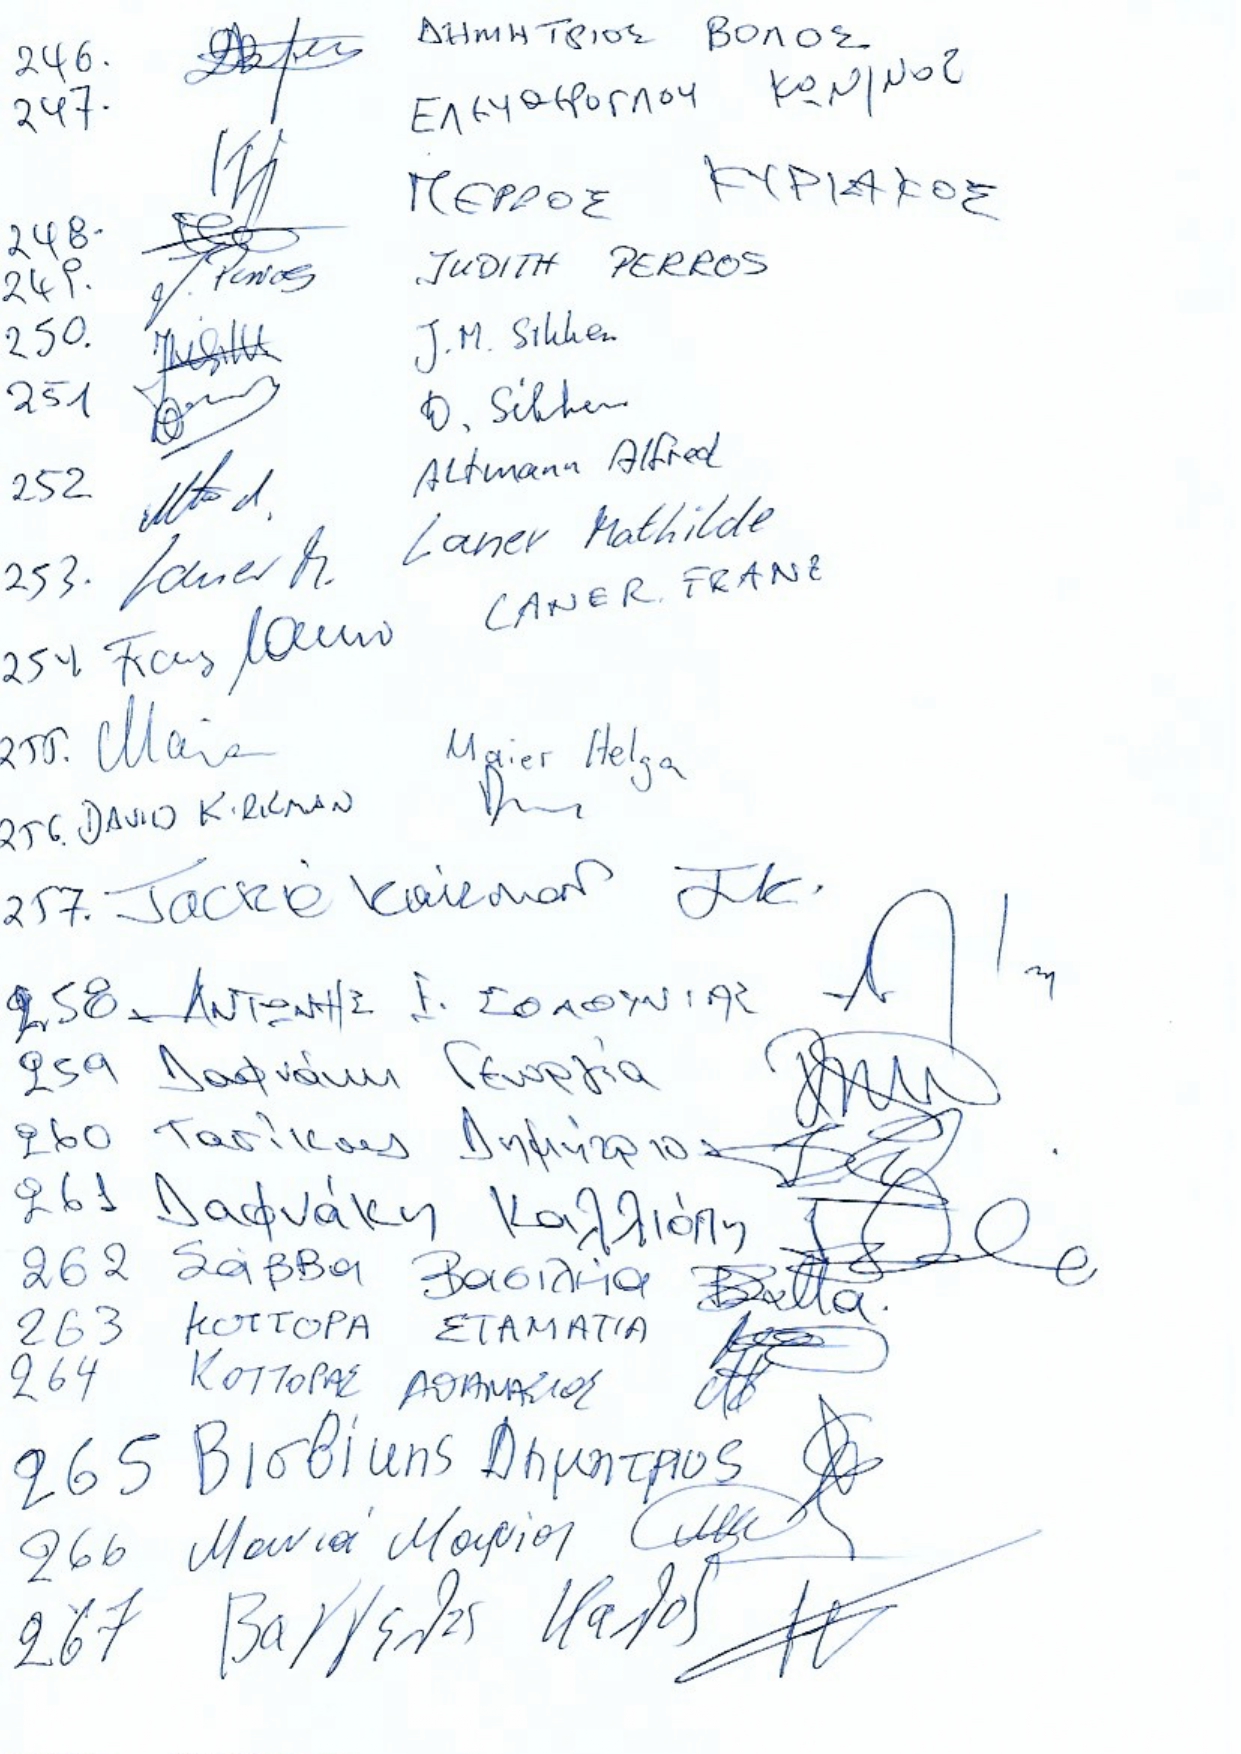 246. ΔΗΜΗΤΡΙΟΣ ΒΟΛΟΣ
247. ΕΛΕΥΘΕΡΟΓΛΟΥ ΚΩΝ/ΝΟΣ
248. ΠΕΡΡΟΣ ΚΥΡΙΑΚΟΣ
249. J. Perros JUDITH PERROS
250. J.M. Sikken
251 D. Sikken
252 Altmann Alfred
253. Laner M. Laner Mathilde
254. Franz Laner LANER. FRANZ
255. Maier Maier Helga
256. DAVID KIRKMAN
257. Jackie Kirkman J.K.
258. ΑΝΤΩΝΗΣ Ι.
259 Δαφνάκη Γεωργία
260 Δημήτριος
261 Δαφνάκη Καλλιόπη
262 Σάββα Βασιλεία
263 ΚΟΤΤΟΡΑ ΣΤΑΜΑΤΙΑ
264 ΚΟΤΤΟΡΑΣ ΑΘΑΝΑΣΙΟΣ
265 Βισβίκης Δημητριος
266 Μανιά Μαρία
267 Βαγγελης